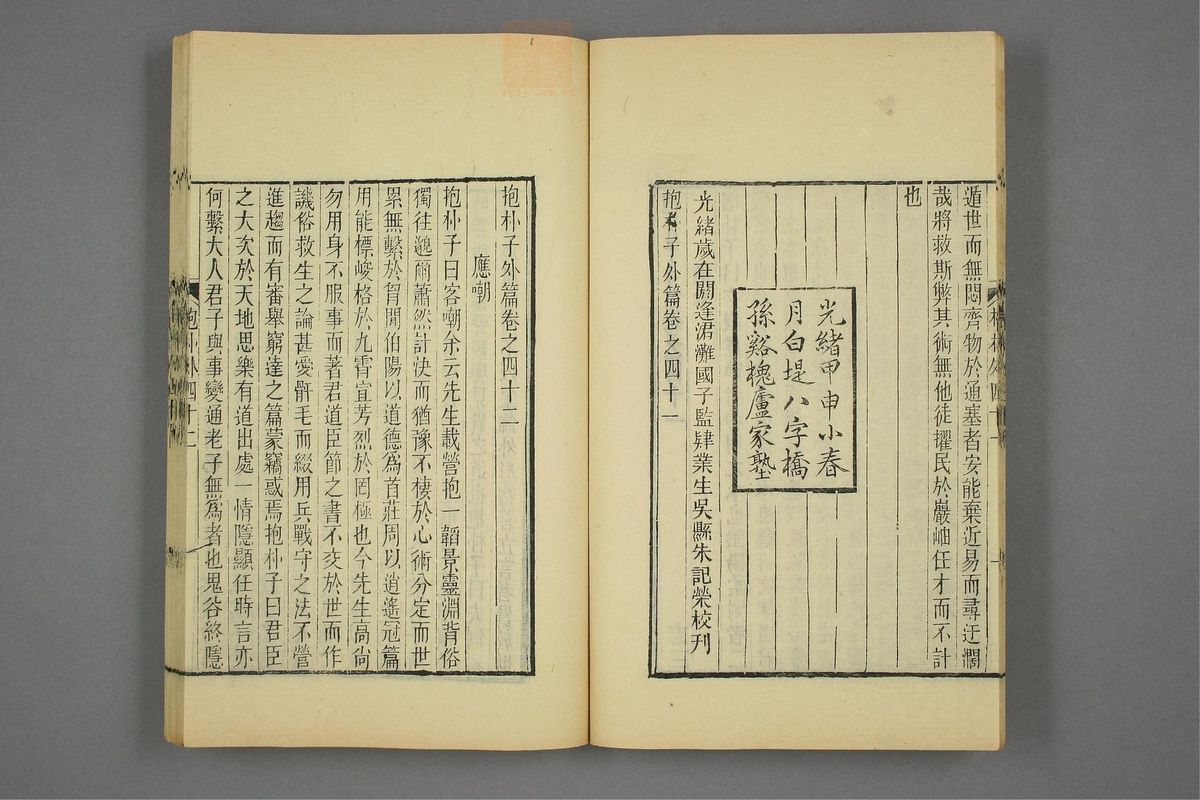 遁世而無悶齊物於通塞者安能棄近易而尋迂濶
哉將救斯弊其術無他徒擢民於巖岫任才而不計
也
光緒甲申小春
月白堤八字橋
孫谿槐廬家塾
光緒歲在閼逢涒灘國子監肄業生吳縣朱記榮校刊
抱朴子外篇卷之四十一
抱朴子外篇卷之四十二
應嘲
抱朴子曰客嘲余云先生載營抱一韜景靈淵背俗
獨往邈爾蕭然計決而猶豫不棲於心術分定而世
累無繫於胷閒伯陽以道德爲首莊周以逍遙冠篇
用能標峻格於九霄宣芳烈於罔極也今先生高尙
勿用身不服事而著君道臣節之書不交於世而作
譏俗救生之論甚愛骭毛而綴用兵戰守之法不營
進趨而有審舉窮達之篇蒙竊惑焉抱朴子曰君臣
之大次於天地思樂有道出處一情隱顯任時言亦
何繫大人君子與事變通老子無爲者也鬼谷終隱
抱朴外四十二